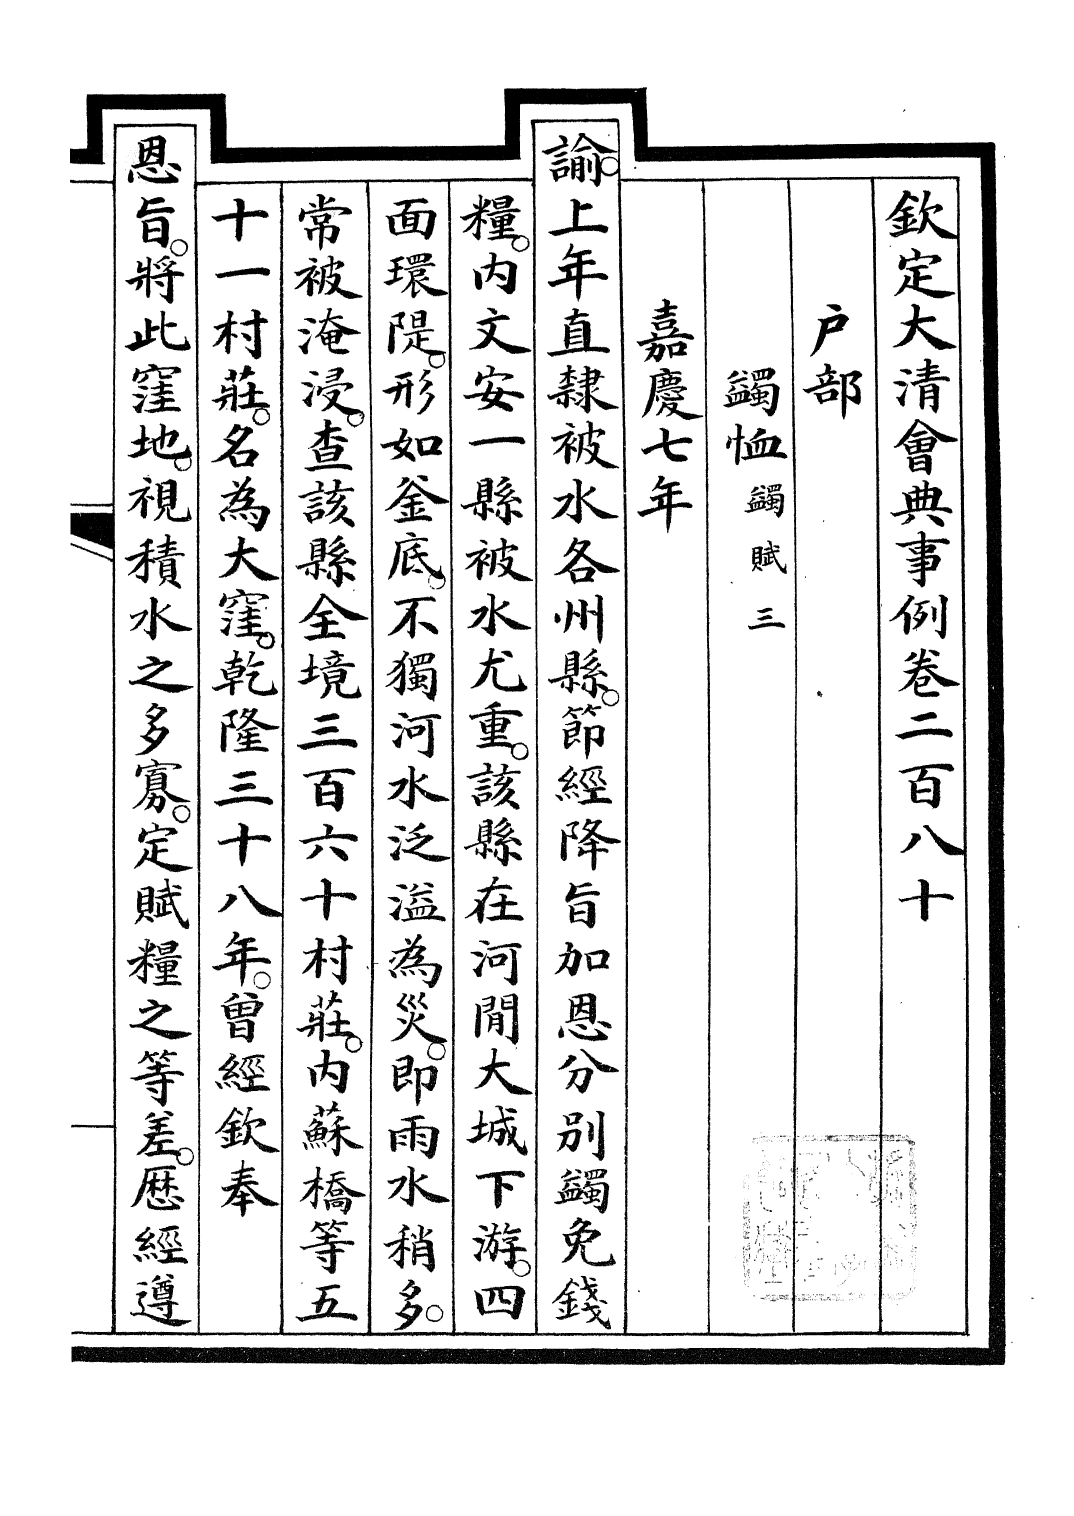 欽定大清會典事例卷二百八十
戶部
蠲恤蠲賦三
嘉慶七年
諭。上年直隸被水各州縣。節經降旨加恩分別蠲免錢
糧。內文安一縣被水尤重。該縣在河間大城下游。四
面環隄。形如釜底。不獨河水泛溢為災。即雨水稍多。
常被淹浸。查該縣全境三百六十村莊。內蘇橋等五
十一村莊。名為大窪。乾隆三十八年。曾經欽奉
恩旨。將此窪地。視積水之多寡。定賦糧之等差。歷經遵